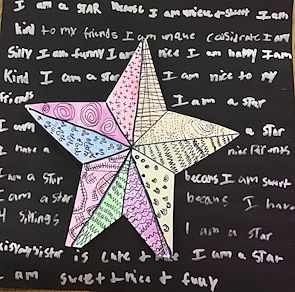 I am a STAR because I am unique + sweet I am
kind to my friends I am unque considrate I am
Silly I am funny I am nice I am happy I am
Kind I am a star I am nice to my
friends I am a star
I am a star
I have a nice friends
I am a star becaus I am sweet
I am a star becaus I have
4 siblings I am a star
sister is cute + I am a star
I am sweet + nice + funy